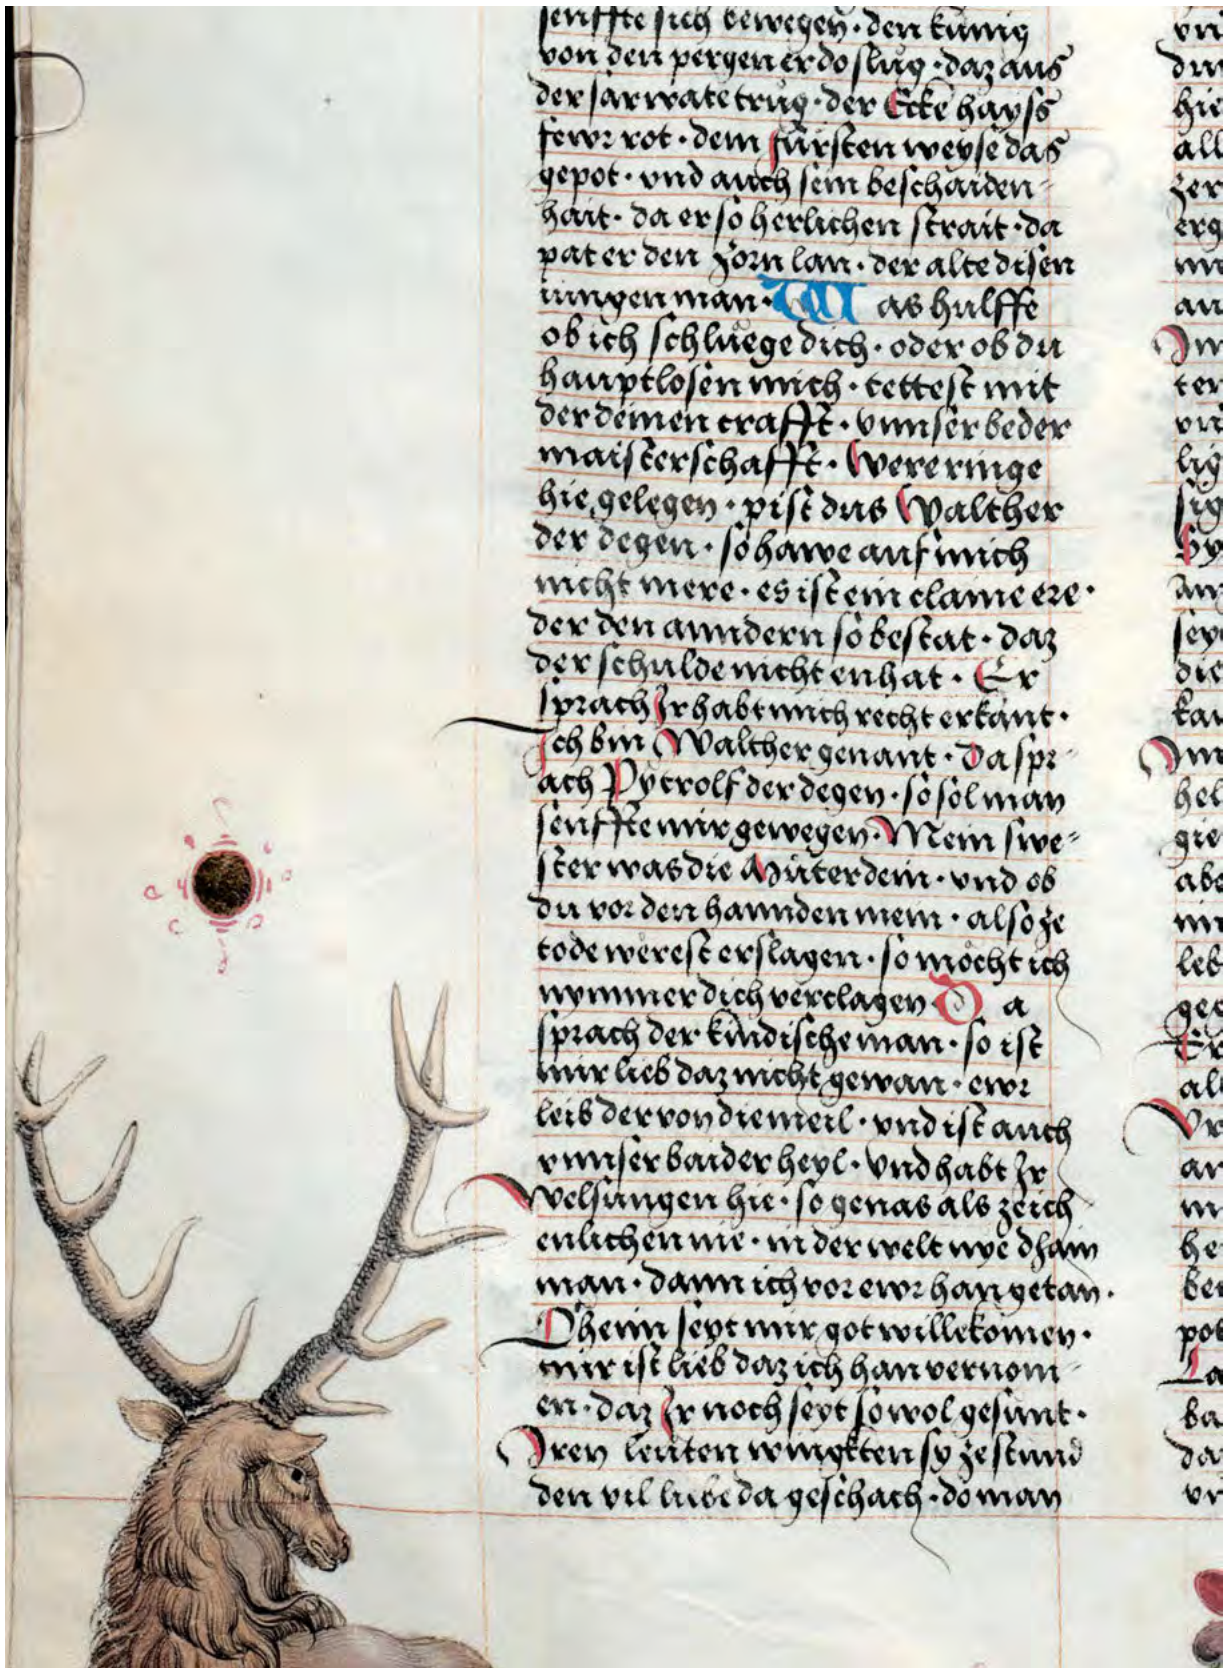 senffte sich bewegen · den kunig
von den pergen er do slůg · daz aus
der sarwate trůg · der Ecke hayss
fewr rot · dem fürsten weyse das
gepot · vnd auch sein beschaiden-
hait · da er so herlichen strait · da
pat er den zorn lan · der alte disen
iungen man · W as hulffe
ob ich schlůege dich · oder ob du
hauptlosen mich · tettest mit
der deinen crafft · vnnser beder
maisterschafft · Were ringe
hie gelegen · pist dus Walther
der degen · so hawe auf mich
nicht mere · es ist ein claine ere ·
der den anndern so bestat · daz
der schulde nicht enhat · Er
sprach Ir habt mich recht erkant ·
Ich bin Walther genant · Da spr-
ach Pytrolf der degen · so sol man
senffte mir gewegen · Mein swe-
ster was die Můter dein · vnd ob
du vor den hannden mein · also ze
tode werest erslagen · so möcht ich
nymmer dich verclagen D a
sprach der kindische man · so ist
mir lieb daz nicht gewan · ewr
leib der von die meil · vnd ist auch
vnnser baider heyl · Vnd habt Ir
Welsungen hie · so genas als zeich
enlichen nie · in der welt nye dhain
man · dann ich vor ewr han getan ·
Oheim seyt mir got willekomen ·
mir ist lieb daz ich han vernom-
en · daz Ir noch seyt so wol gesunt ·
Iren leuten wingkten sy ze stund
den vil liebe da geschach · do man
vn
hie
all
zer
erg
an
ter
lig
sig
sey
die
kan
hel
gie
abe
leb
gee
Er
als
an
he
ber
pot
La
ba
da